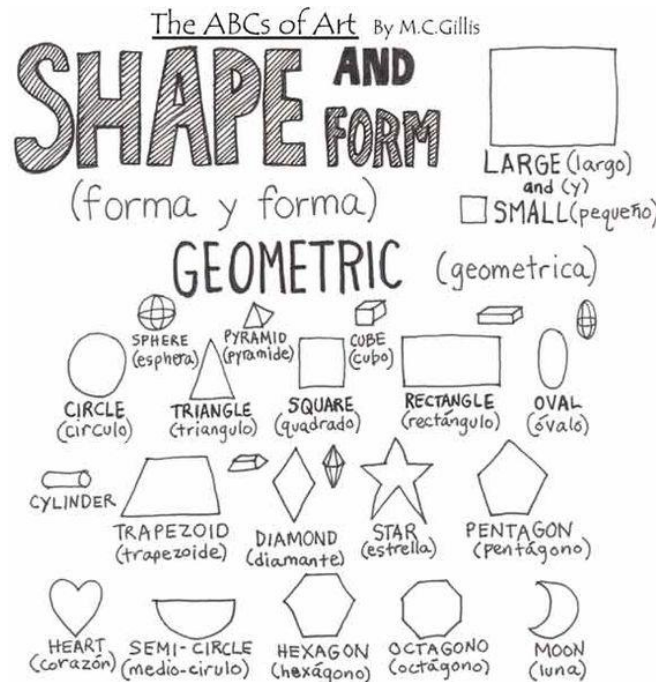 The ABCs of Art By M.C.Gillis
SHAPE AND FORM
(forma y forma)
LARGE (largo)
and (y)
SMALL (pequeño)
GEOMETRIC (geometrica)
SPHERE
(esphera)
PYRAMID
(pyramide)
CUBE
(cubo)
CIRCLE
(circulo)
TRIANGLE
(triangulo)
SQUARE
(quadrado)
RECTANGLE
(rectángulo)
OVAL
(óvaló)
CYLINDER
TRAPEZOID
(trapezoide)
DIAMOND
(diamante)
STAR
(estrella)
PENTAGON
(pentágono)
HEART
(corazón)
SEMI-CIRCLE
(medio-cirulo)
HEXAGON
(hexágono)
OCTAGONO
(octágono)
MOON
(luna)